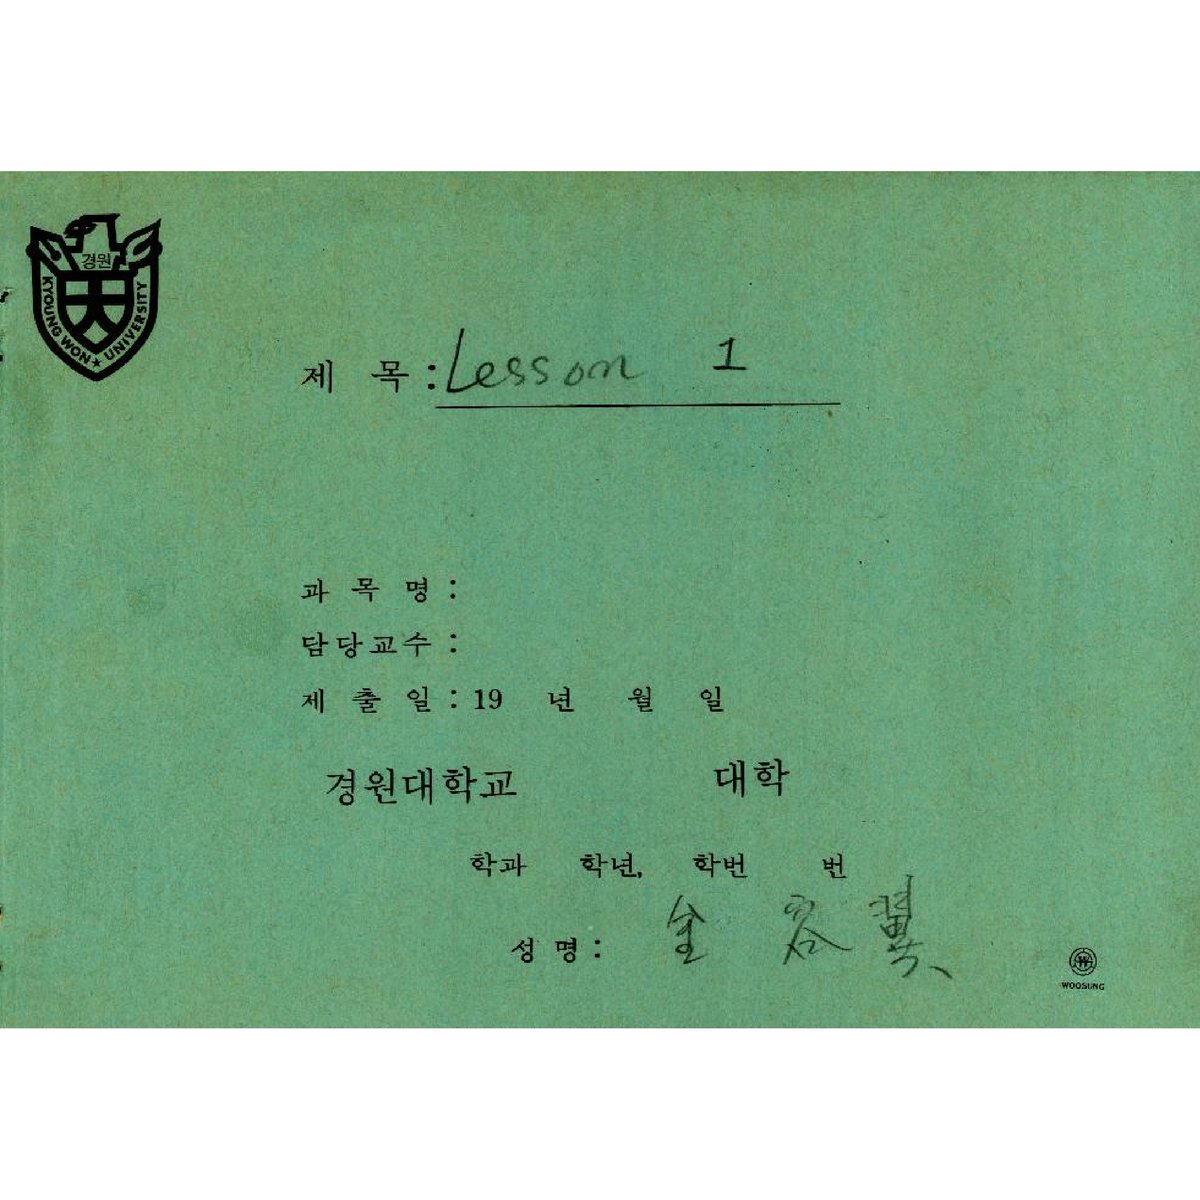 경원
KYOUNG WON ★ UNIVERSITY
제 목 : Lesson 1
과 목 명 :
담당교수 :
제 출 일 : 19 년 월 일
경원대학교 대학
학과 학년, 학번 번
성 명 : 金 容 翼
WOOSUNG